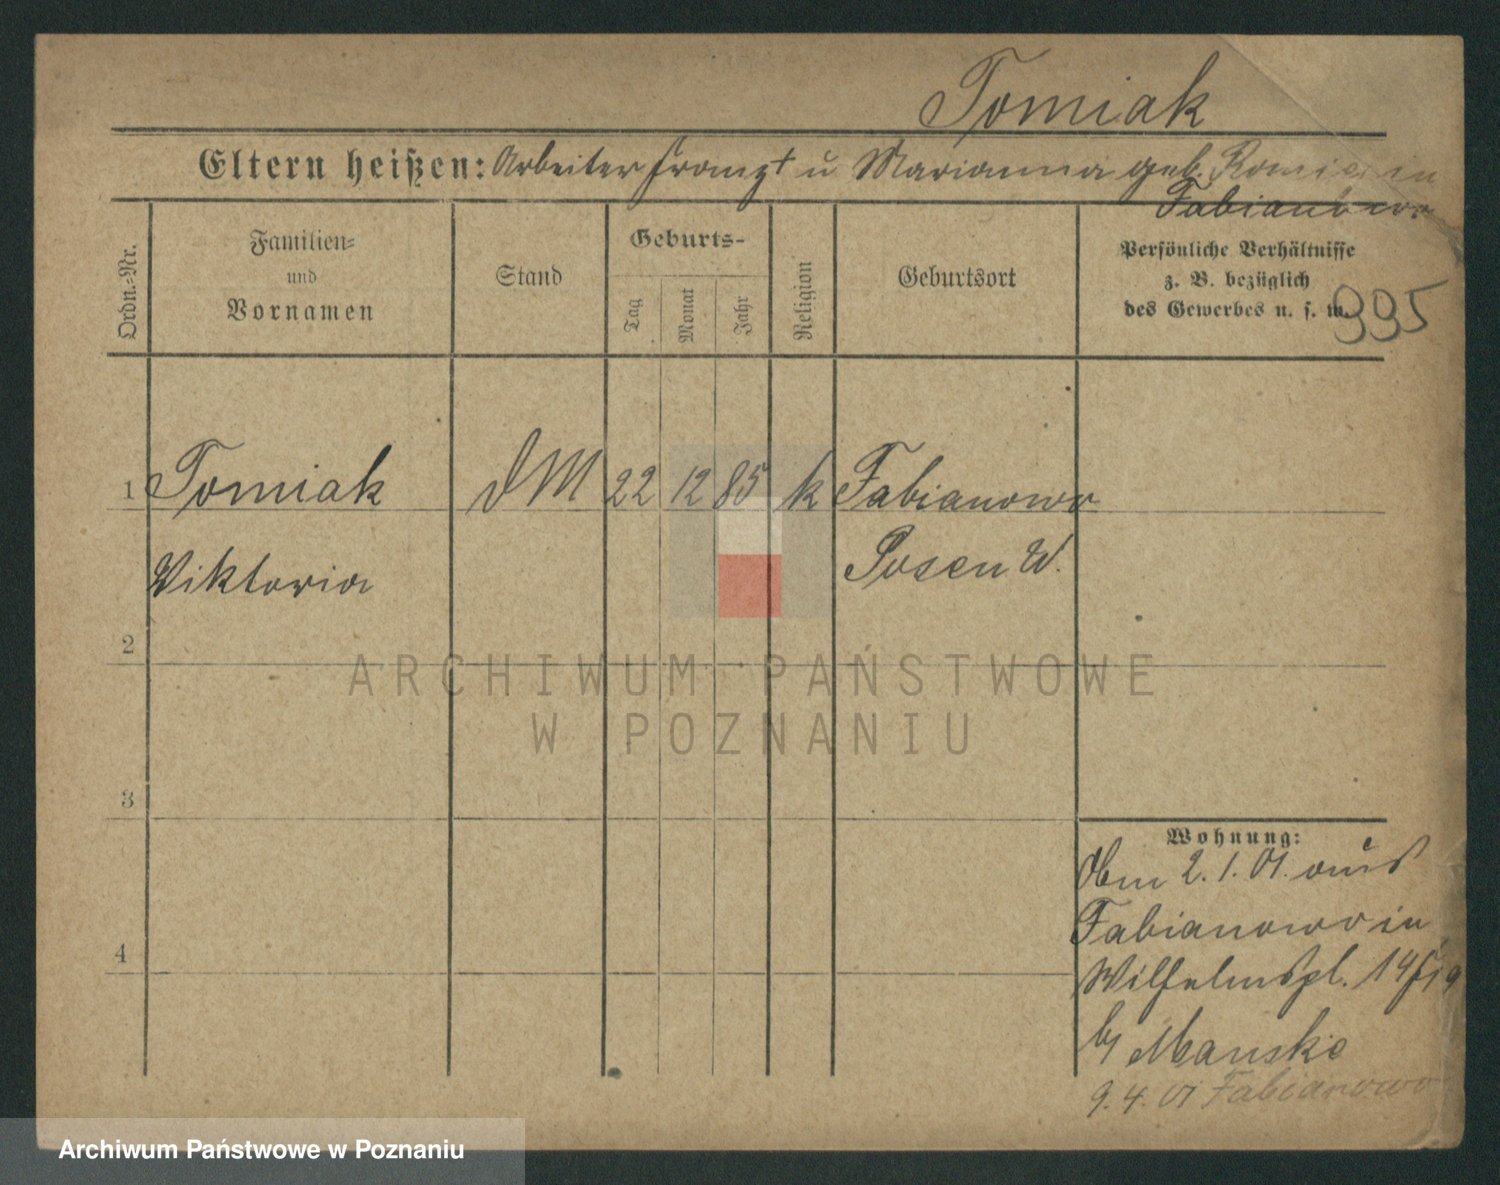 Tomiak
Eltern heißen: Arbeiter Franz † u Marianna geb. in
Fabianowo
Ordn.-Nr.
Familien-
und
Vornamen
Stand
Geburts-
Tag
Monat
Jahr
Religion
Geburtsort
Persönliche Verhältnisse
z. B. bezüglich
des Gewerbes u. s. w.
995
1 Tomiak DM 22 12 85 k Fabianowo
Viktoria Posen W.
2
ARCHIWUM PAŃSTWOWE
W POZNANIU
3
Wohnung:
2.1.01. aus
Fabianowo in
4
Wilhelmspl. 14
b/ Manske
9.4.01 Fabianowo
Archiwum Państwowe w Poznaniu